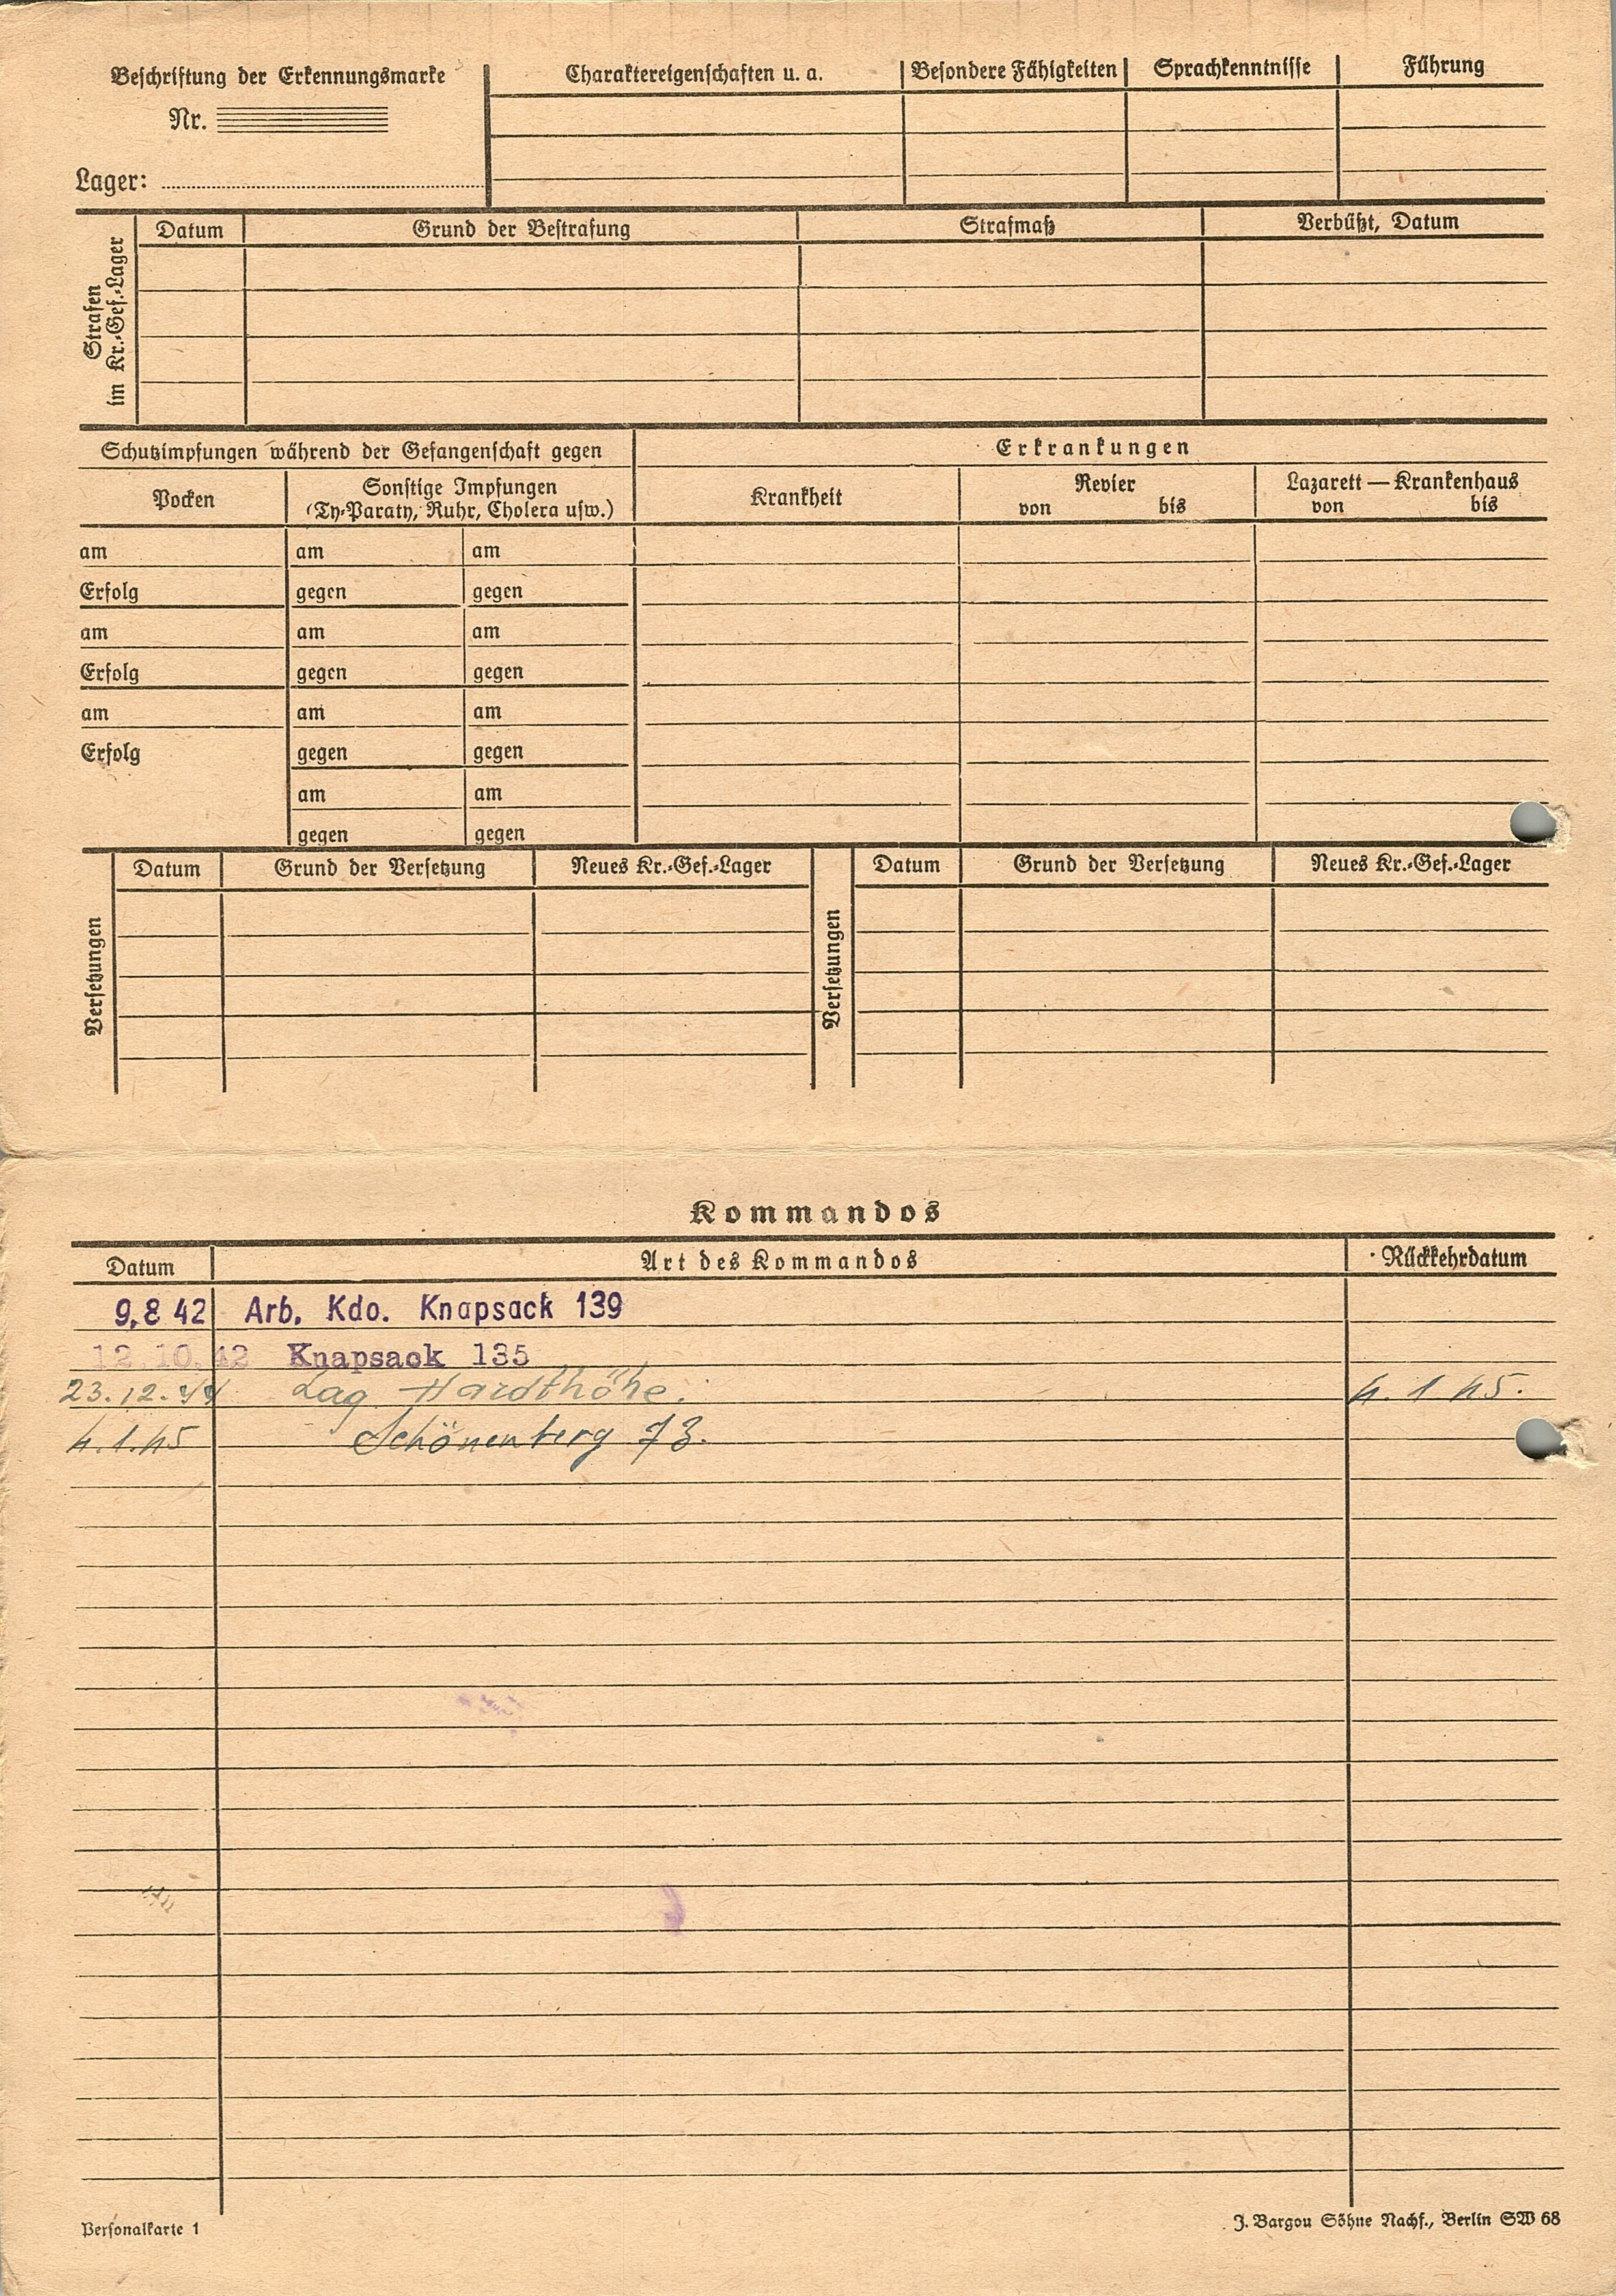 Beschriftung der Erkennungsmarke
Nr.
Lager:
Charaktereigenschaften u. a. Besondere Fähigkeiten Sprachkenntnisse Führung
Strafen
im Kr.-Gef.-Lager
Datum Grund der Bestrafung Strafmaß Verbüßt, Datum
Schutzimpfungen während der Gefangenschaft gegen
Pocken
Sonstige Impfungen
(Ty-Paraty, Ruhr, Cholera usw.)
Erkrankungen
Krankheit
Revier
von bis
Lazarett — Krankenhaus
von bis
am am am
Erfolg gegen gegen
am am am
Erfolg gegen gegen
am am am
Erfolg gegen gegen
am am
gegen gegen
Versetzungen
Datum Grund der Versetzung Neues Kr.-Gef.-Lager
Versetzungen
Datum Grund der Versetzung Neues Kr.-Gef.-Lager
Kommandos
Datum Art des Kommandos Rückkehrdatum
9.8 42 Arb. Kdo. Knapsack 139
12.10.42 Knapsack 135
23.12.44 Lag. Hardthöhe. 4. 1 45.
4.1.45 Schönenberg 73.
Personalkarte 1
J. Bargou Söhne Nachf., Berlin SW 68